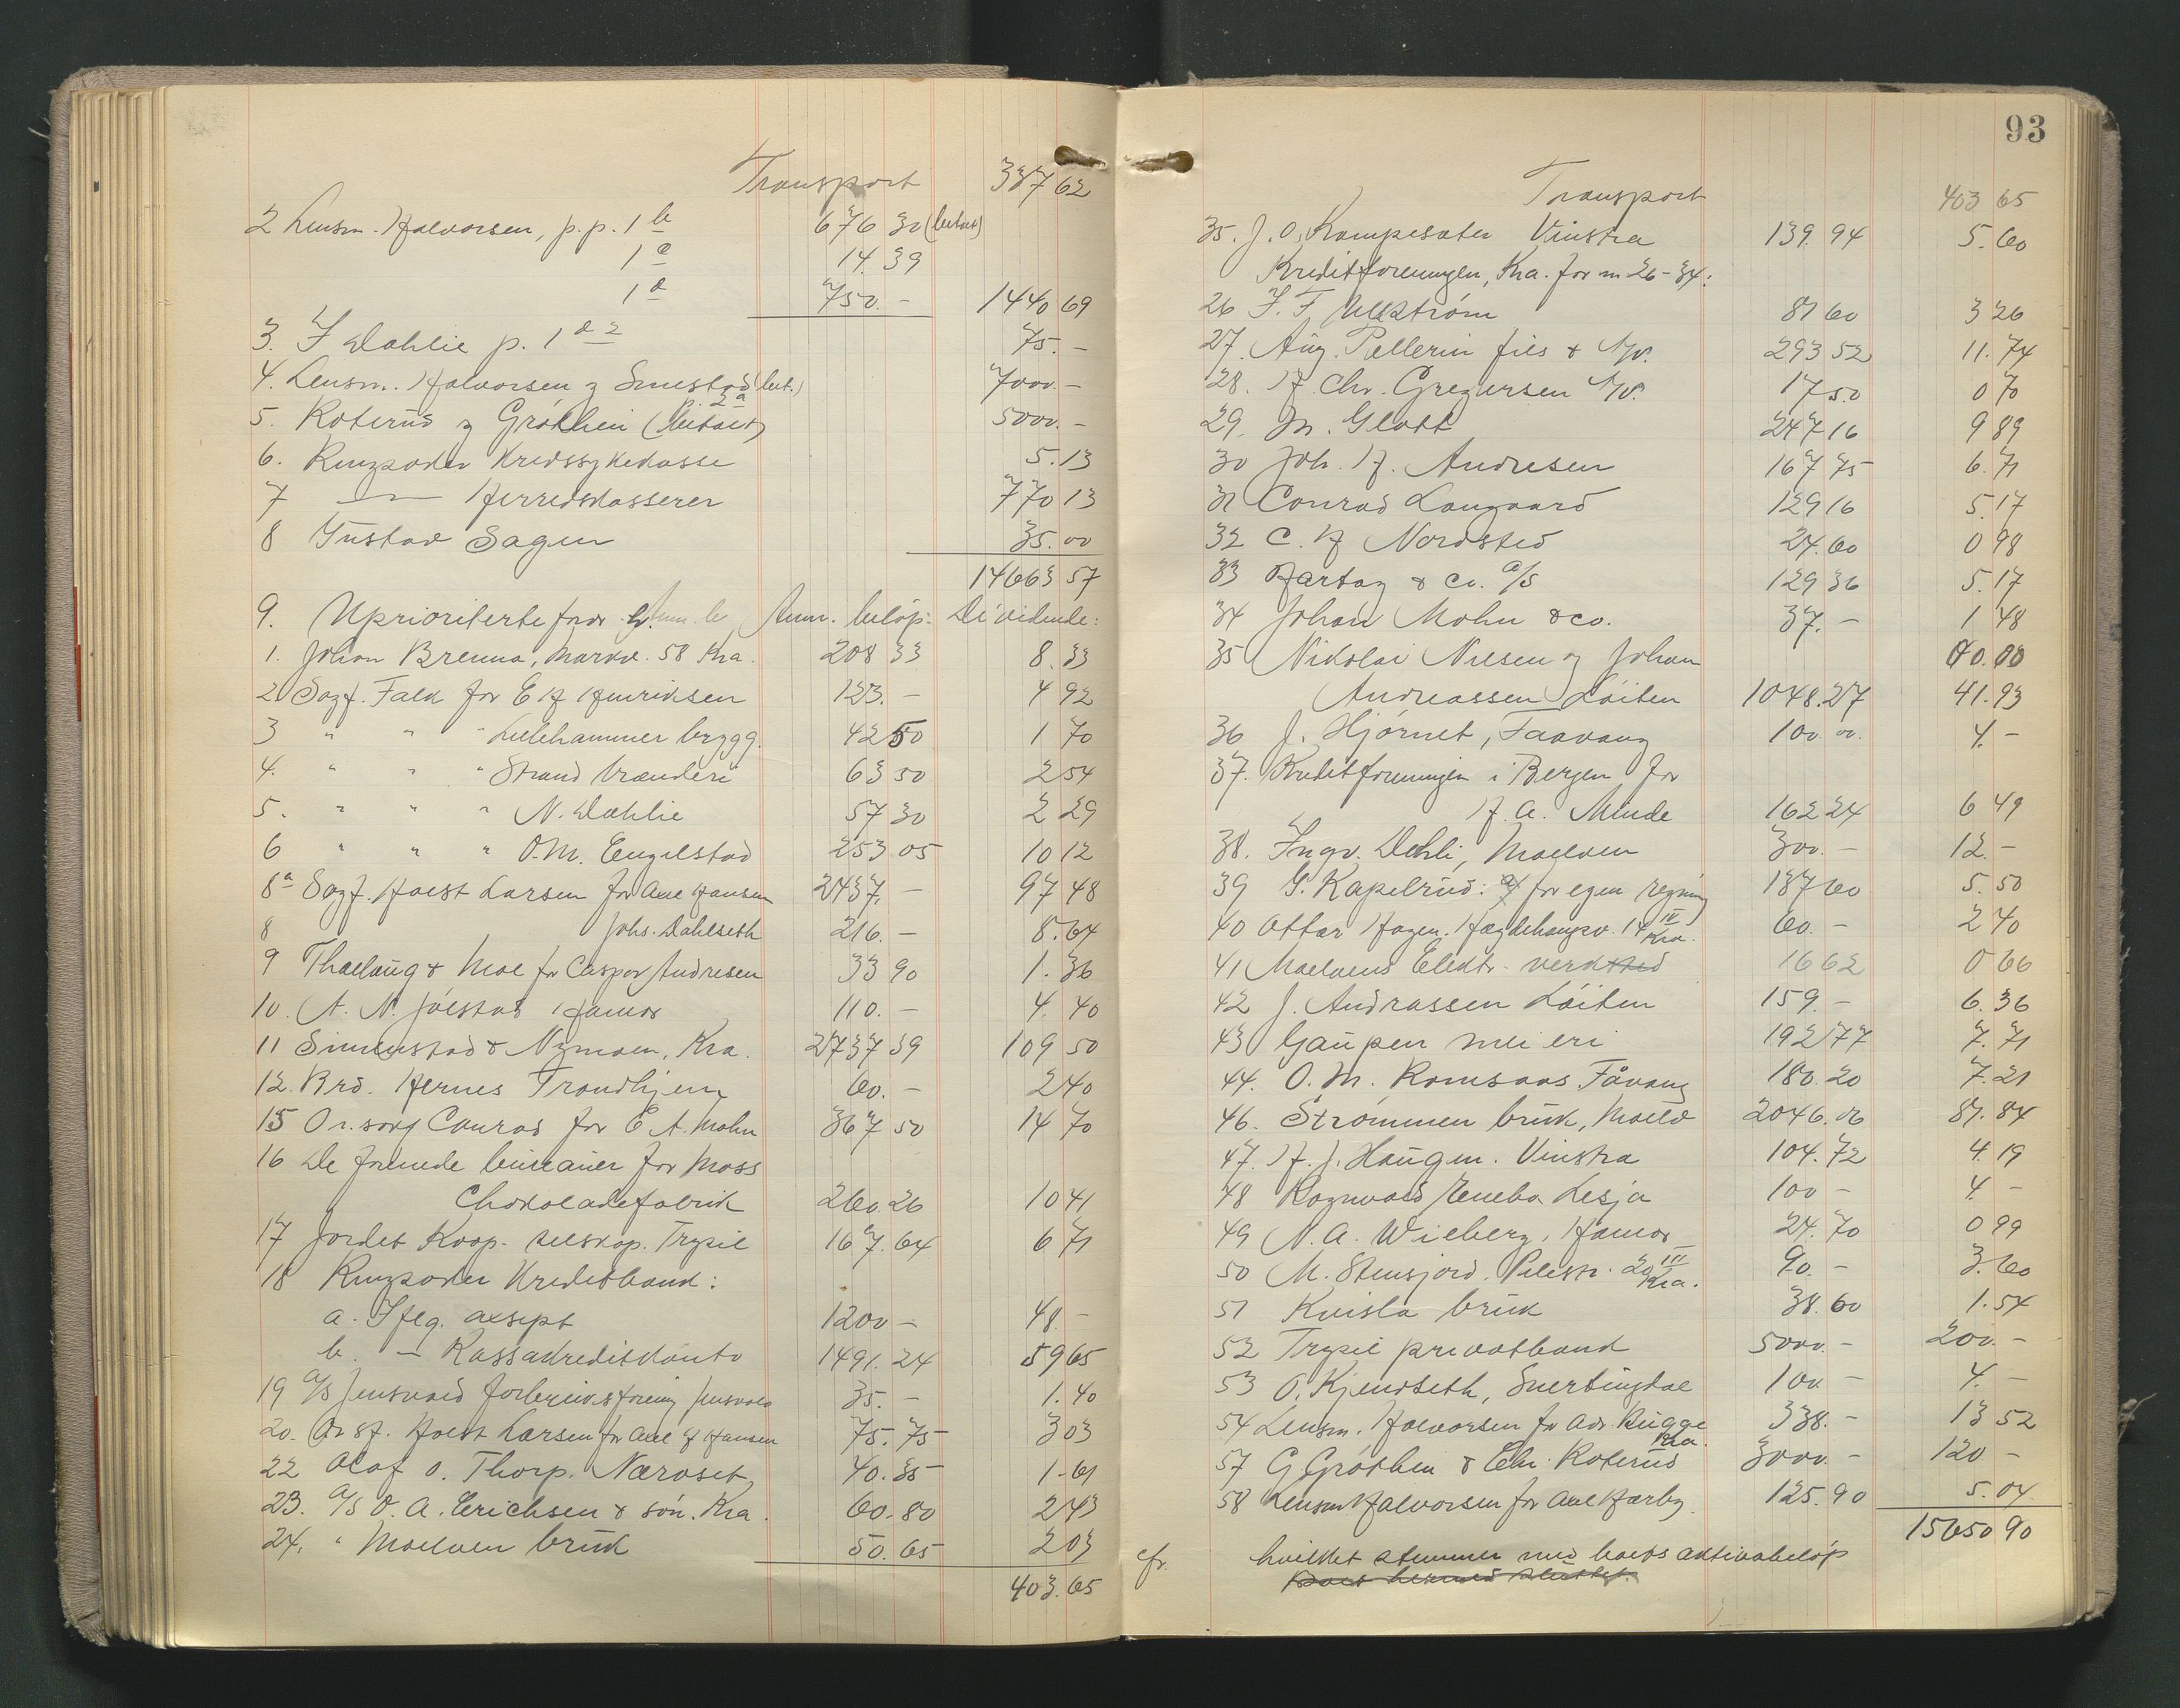 Transport 337 62
2 Lensm. Halvorsen, p.p. 1 b 676 30 (betalt)
1 c 14. 39
1 d 750. - 1440 69
3. I Dahlie p. 1 d 2 75. -
4. Lensm. Halvorsen og Smestad (bet.) 7000. -
5. Koterud og Gröthen (betalt) p. 2 a 5000. -
6. Ringsaker Kredssykekasse 5. 13
7 — " — Herredskasserer 770 13
8 Gustav Sagen 35. 00
14663 57
9. Uprioriterte fordr. Anm. beløp: Dividende:
1. Johan Brenna, Markv. 58 Kra. 208 33 8. 33
2 Sagf. Falk for E H Henriksen 123. - 4 92
3 " " " Lillehammer brygg. 42 50 1 70
4. " " " Strand brænderi 63 50 2 54
5. " " " N. Dæhlie 57 30 2 29
6 " " " O. M. Engelstad 253 05 10 12
8 a Sagf. Hoest Larsen for Axel Hansen 2437. - 97 48
8 Johs. Dahlseth 216. - 8. 64
9 Thaelaug & Moe for Caspar Andresen 33 90 1. 36
10. A. N. Jølstad Hamar 110. - 4. 40
11 Simenstad & Nymoen, Kra. 2737 39 109 50
12. Brd. Hernes Trondhjem 60. - 2 40
15 Or. sagf Conrad for E A. Mohn 367 50 14 70
16 De forenede bureauer for Moss
Chokoladefabrik 260. 26 10 41
17 Jordet Koop. selskap. Trysil 167. 64 6 71
18 Ringsaker Kreditbank:
a. Ifølg. aksept 1200 - 48 -
b. — Kassakreditkonto 1491. 24 59 65
19 A/S Jensvold forbruksforening Jensvold 35. - 1. 40
20. Or sf. Hoest Larsen for Axel H Hansen 75. 75 3 03
22 Olaf O. Thorp. Næroset 40. 35 1. 61
23. A/S O. A. Erichsen & søn. Kra. 60. 80 2 43
24. " Moelven bruk 50. 65 2 03
403. 65
93
Transport 403 65
35. J. O. Kampesæter Vinstra 139. 94 5. 60
Kreditforeningen, Kra. for nr 26 - 34:
26 F. F. Ullström 81 60 3 26
27. Aug. Pellerin fils & Co. 293 52 11. 74
28. H. Chr. Gregersen & Co. 17 50 0 70
29. M. Glott 247 16 9 89
30 Joh. H. Andresen 167 75 6. 71
31 Conrad Langaard 129 16 5. 17
32 C. H Nordsted 24. 60 0 98
33 Hartog & co. A/S 129 36 5. 17
34 Johan Mohn & co. 37. - 1 48
35 Nikolai Nilsen og Johan
Andreassen Løiten 1048. 27 41. 93
36 J. Hjørnet, Faavang 100. 00. 4. -
37. Kreditforeningen i Bergen for
H. A. Minde 162 24 6 49
38. Ingv. Dehli, Moelven 300. - 12. -
39 G. Kapelrud: a/ for egen regning 137 60 5. 50
40 Ottar Hagen. Hægdehaugsv. 14 IV Kra. 60. - 2 40
41 Moelvens Elektr. verk 16 62 0 66
42 J. Andrassen Løiten 159. - 6. 36
43 Gaupen meieri 192 77 7. 71
44. O. M. Romsaas Fåvang 180. 20 7. 21
46. Strømmen bruk, Moelv 2046. 06 81. 84
47. H. J. Haugen. Vinstra 104. 72 4. 19
48 Ragnvald Eneboe Lesja 100 - 4. -
49 N. A. Wilberg, Hamar 24. 70 0 99
50 M. Stensjord. Pilestr. 20 III Kra. 90. - 3. 60
51 Kvisla bruk 38. 60 1. 54
52 Trysil privatbank 5000. - 200. -
53 O. Kjendseth, Snertingdal 100 - 4. -
54 Lensm. Halvorsen for Adv. Bugge Kra. 338. - 13 52
57 G Gröthen & Chr. Koterud 3000. - 120 -
58 Lensm Halvorsen for Axel Hærby 125. 90 5. 04
15650 90
cfr. hvilket stemmer med boets aktivabeløp
Boet hermed sluttet.